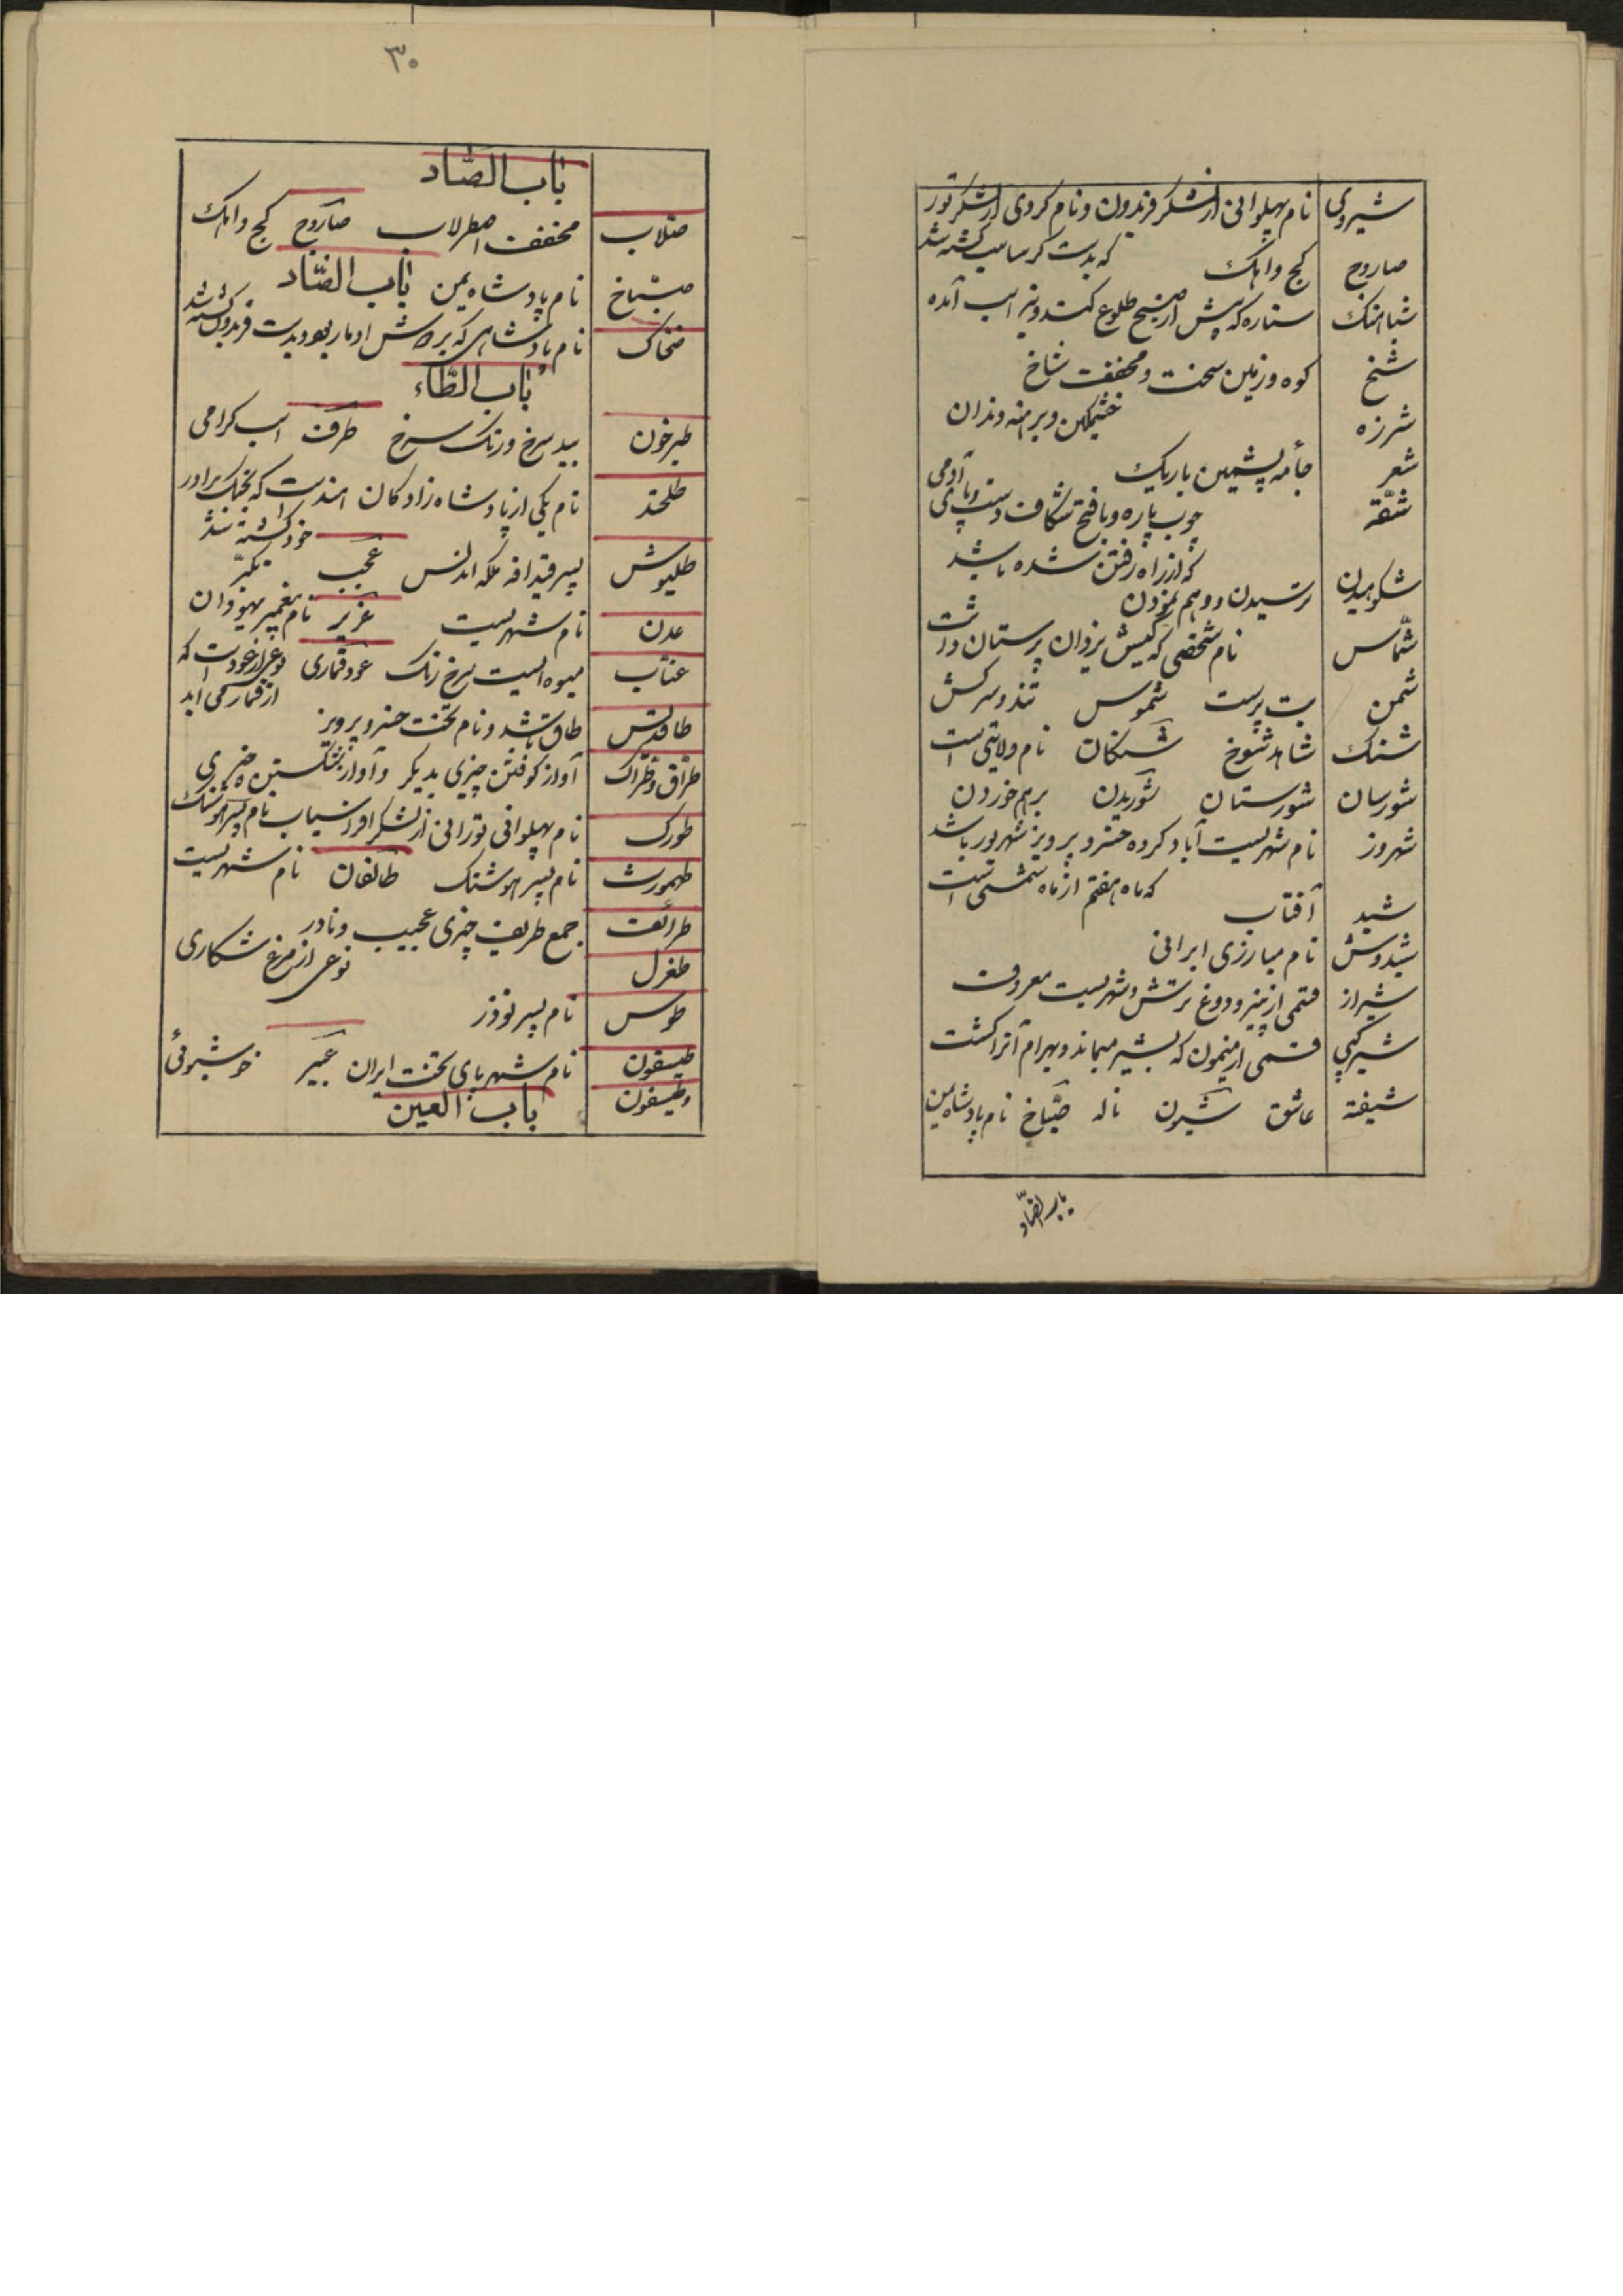 شیروی نام پهلوانی از لشکر فریدون و نام کردی از لشکر تور
که بدست کرساسب کشته شد
صاروج کج و اهک
شباهنک ستاره که پیش از صبح طلوع کند و نیز اسب آمده
شخ کوه و زمین سخت و مخفف شاخ
شرزه خشمکین و برهنه دندان
شعر جامه پشمین باریک
شقّه چوب پاره و بافتح شکاف دست و پای آدمی
که از راه رفتن شده باشد
شکوهیدن ترسیدن و وهم نمودن
شمّاس نام شخصی که کیش یزدان پرستان داشت
شمن بت پرست شموس تند و سرکش
شنک شاهد شوخ شنکان نام ولایتی است
شورسان شورستان شوریدن برهم خوردن
شهروز نام شهریست آباد کرده خسرو پرویز شهریور باشد
که ماه هفتم از ماه شمسی است
شید آفتاب
شیدوش نام مبارزی ایرانی
شیراز قسمی از پنیر و دوغ ترش و شهریست معروف
شیرکپی قسمی از میمون که بشیر میماند و بهرام آنرا کشت
شیفته عاشق شیون ناله ضبّاخ نام پادشاه یمن
باب الضّاد
۳۰
باب الصّاد
صلاب مخفف اصطرلاب صاروج کج و اهک
صبّاخ نام پادشاه یمن باب الضّاد
ضحاک نام پادشاهی که بر دوش او مار بود و بدست فریدون کشته شد
باب الطّاء
طبرخون بید سرخ و رنک سرخ طرف اسب کرامی
طلحند نام یکی از پادشاه زادکان هندست که بجنک برادر
خود کشته شد
طلیوش پسر قیدافه ملکه اندلس عجب تکبّر
عدن نام شهریست عزیر نام پیغمبر یهودان
عنّاب میوه ایست سرخ رنک عود قماری نوعی از عودست که
از قمار می اید
طاقدیس طاق باشد و نام تخت خسرو پرویز
طراق و طراک آواز کوفتن چیزی بدیکر و آواز شکستن چیزی
طورک نام پهلوانی تورانی از لشکر افراسیاب نام پسر هوشنک
طهمورث نام پسر هوشنک طالقان نام شهریست
طرائف جمع طریف چیزی عجیب و نادر
طغرل نوعی از مرغ شکاری
طوس نام پسر نوذر
طیسفون نام شهر پای تخت ایران عبیر خوشبوئی
وطیسفون باب العین